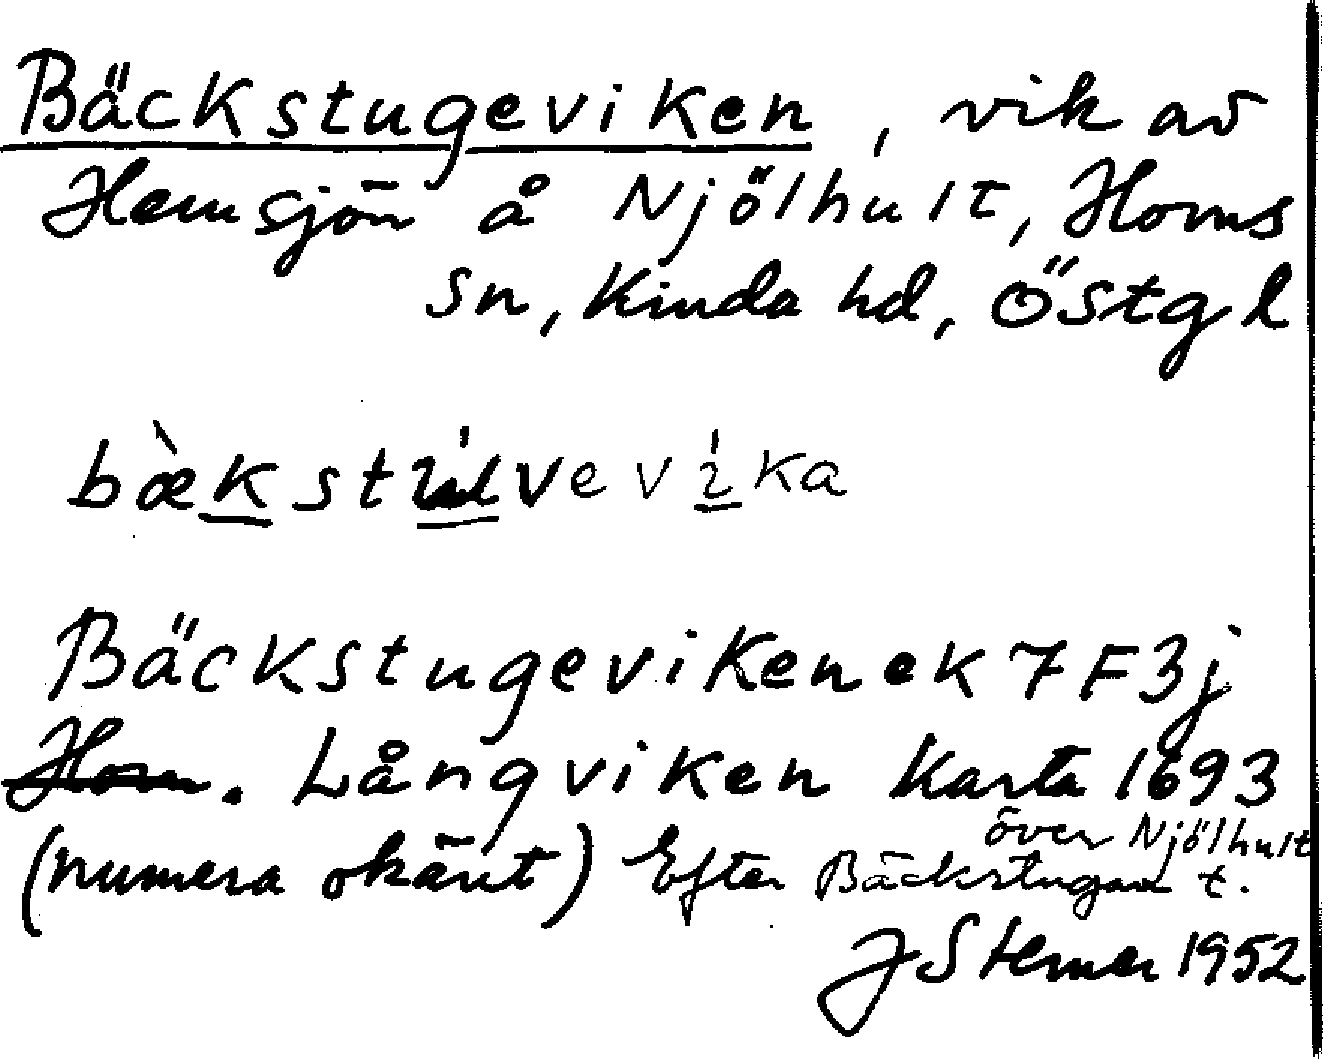 Bäckstugeviken, vik av
Hemsjön å Njölhult, Horns
sn, Kinda hd, Östgl
Bäckstugeviken ek 7F3j
Horn. Långviken Karta 1693
över Njölhult
(numera okänt) Efter Bäckstugan t.
J Sterner 1952